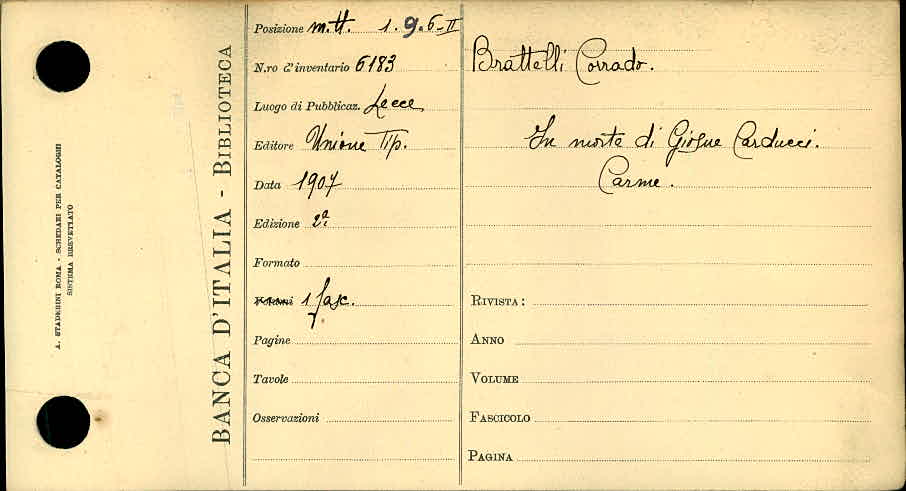 A. STADERINI ROMA - SCHEDARI PER CATALOGHI
SISTEMA BREVETTATO
BANCA D'ITALIA - BIBLIOTECA
Posizione m.tt. 1. 9. 6-II
N.ro d'inventario 6183
Luogo di Pubblicaz. Lecce
Editore Unione Tip.
Data 1907
Edizione 2ª
Formato
1 fasc.
Pagine
Tavole
Osservazioni
Brattelli Corrado.
In morte di Giosue Carducci.
Carme.
RIVISTA:
ANNO
VOLUME
FASCICOLO
PAGINA